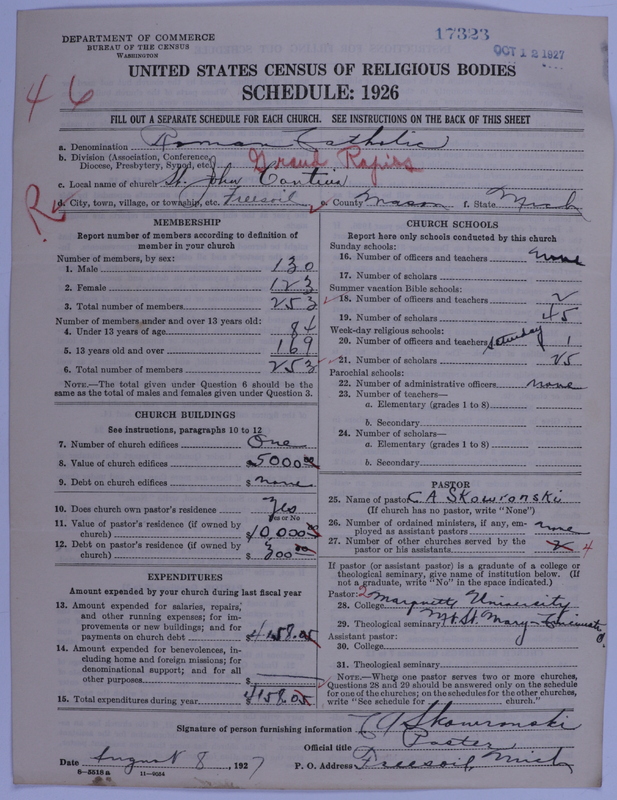 DEPARTMENT OF COMMERCE
BUREAU OF THE CENSUS
WASHINGTON
17323
OCT 12 1927
UNITED STATES CENSUS OF RELIGIOUS BODIES
SCHEDULE: 1926
46
FILL OUT A SEPARATE SCHEDULE FOR EACH CHURCH. SEE INSTRUCTIONS ON THE BACK OF THIS SHEET
a. Denomination Roman Catholic
b. Division (Association, Conference, Diocese, Presbytery, Synod, etc.) Grand Rapids
c. Local name of church St. John Cantius
d. City, town, village, or township, etc. Freesoil e. County Mason f. State Mich
R
MEMBERSHIP
Report number of members according to definition of
member in your church
Number of members, by sex:
1. Male 130
2. Female 123
3. Total number of members 253
Number of members under and over 13 years old:
4. Under 13 years of age 84
5. 13 years old and over 169
6. Total number of members 253
NOTE.—The total given under Question 6 should be the
same as the total of males and females given under Question 3.
CHURCH BUILDINGS
See instructions, paragraphs 10 to 12
7. Number of church edifices One
8. Value of church edifices $5000 00
9. Debt on church edifices $ none
10. Does church own pastor's residence Yes
Yes or No
11. Value of pastor's residence (if owned by
church) $10,000 00
12. Debt on pastor's residence (if owned by
church) $300 00
EXPENDITURES
Amount expended by your church during last fiscal year
13. Amount expended for salaries, repairs,
and other running expenses; for im-
provements or new buildings; and for
payments on church debt $4158.05
14. Amount expended for benevolences, in-
cluding home and foreign missions; for
denominational support; and for all
other purposes $
15. Total expenditures during year $4158.05
CHURCH SCHOOLS
Report here only schools conducted by this church
Sunday schools:
16. Number of officers and teachers none
17. Number of scholars
Summer vacation Bible schools:
18. Number of officers and teachers 2
19. Number of scholars 45
Week-day religious schools:
20. Number of officers and teachers Saturday 1
21. Number of scholars 25
Parochial schools:
22. Number of administrative officers none
23. Number of teachers—
a. Elementary (grades 1 to 8)
b. Secondary
24. Number of scholars—
a. Elementary (grades 1 to 8)
b. Secondary
PASTOR
25. Name of pastor C A Skowronski
(If church has no pastor, write "None")
26. Number of ordained ministers, if any, em-
ployed as assistant pastors none
27. Number of other churches served by the
pastor or his assistants 4
If pastor (or assistant pastor) is a graduate of a college or
theological seminary, give name of institution below. (If
not a graduate, write "No" in the space indicated.)
Pastor: 2
28. College Marquette University
29. Theological seminary Mt. St. Mary - Cincinnati O.
Assistant pastor:
30. College
31. Theological seminary
NOTE.—Where one pastor serves two or more churches,
Questions 28 and 29 should be answered only on the schedule
for one of the churches; on the schedules for the other churches,
write "See schedule for church."
Signature of person furnishing information C A Skowronski
Official title Pastor
Date August 8, 1927 P. O. Address Freesoil, Mich
8—5518a 11—9054